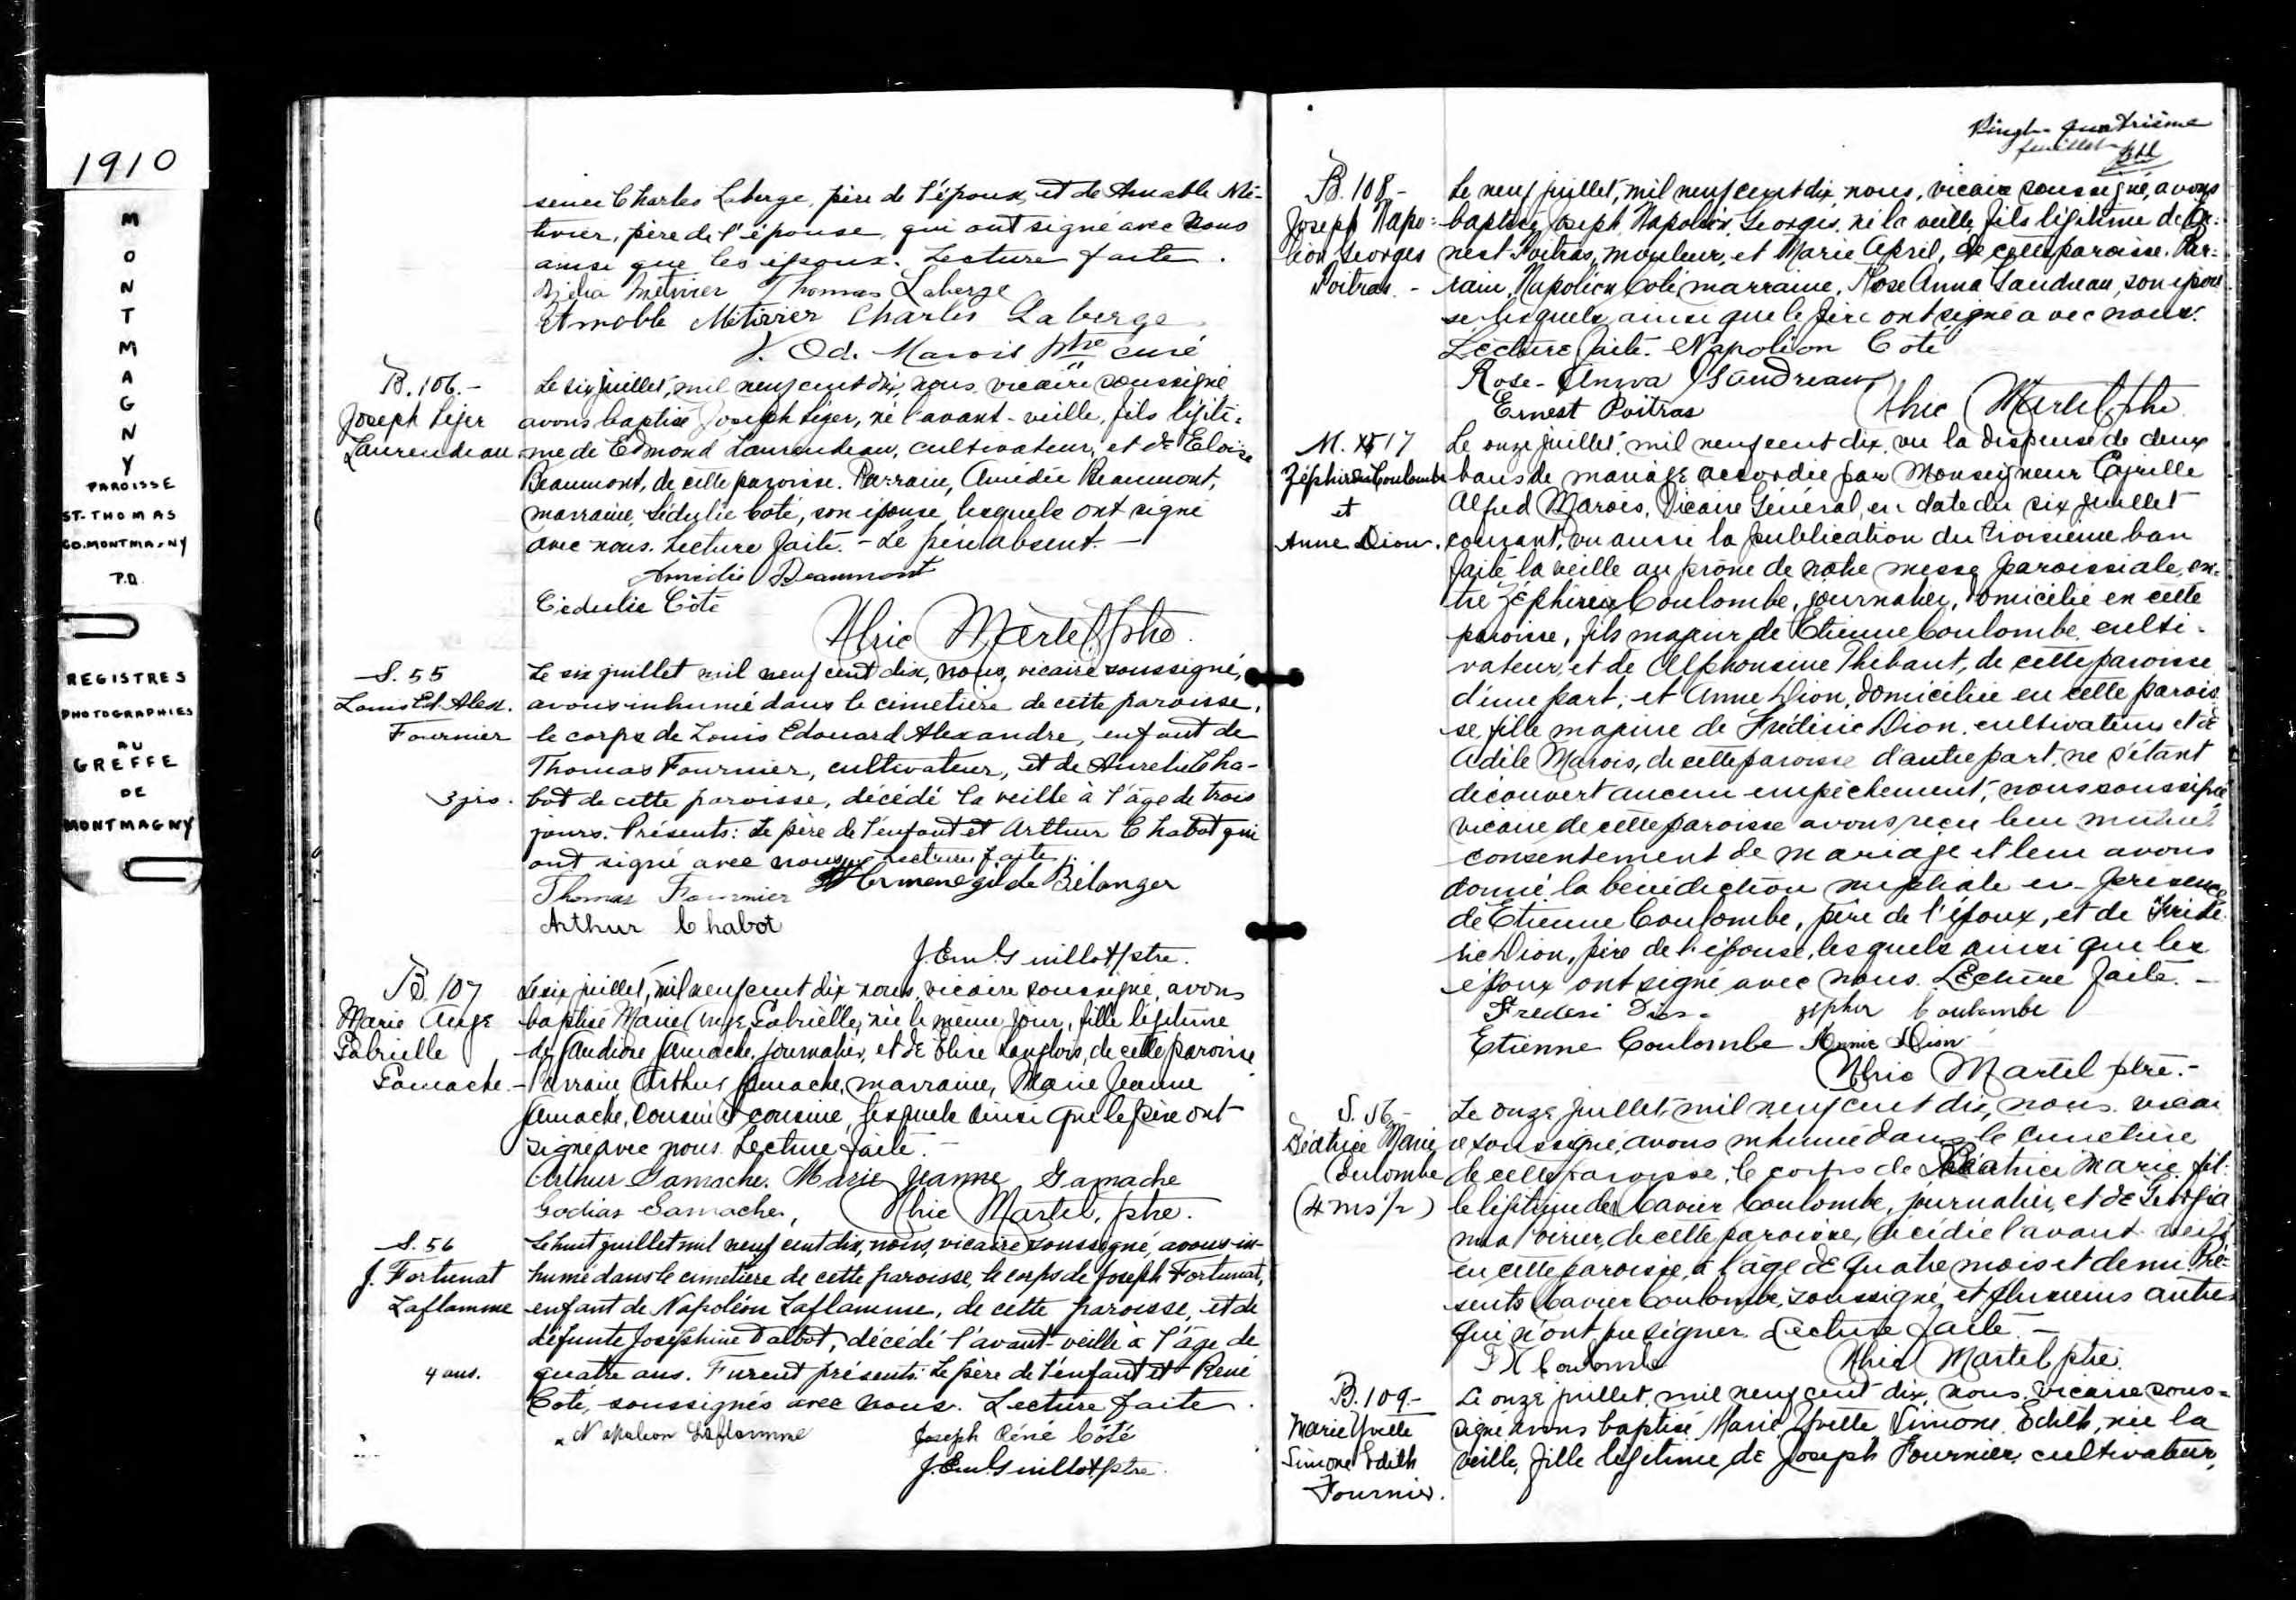 1910
MONTMAGNY
PAROISSE
ST-THOMAS
CO. MONTMAGNY
P.Q.
REGISTRES
PHOTOGRAPHIES
AU
GREFFE
DE
MONTMAGNY
sence Charles Laberge, père de l'époux, et de Amable Mé-
tivier, père de l'épouse, qui ont signé avec nous
ainsi que les époux. Lecture faite.
Métivier Thomas Laberge
Amable Métivier Charles Laberge
J. Od. Marois ptre curé
B. 106.-
Joseph Léger
Laurendeau
Le six juillet, mil neuf cent dix, nous vicaire soussigné
avons baptisé Joseph Léger, né l'avant-veille, fils légiti-
me de Edmond Laurendeau, cultivateur, et de Eloïse
Beaumont, de cette paroisse. Parrain, Amédée Beaumont,
marraine, Cédulie Coté, son épouse, lesquels ont signé
avec nous. Lecture faite. - Le père absent. -
Amédée Beaumont
Cédulie Côté
Alric Martel, ptre.
S. 55
Louis Ed. Alex.
Fournier
3 jrs.
Le six juillet mil neuf cent dix, nous, vicaire soussigné,
avons inhumé dans le cimetière de cette paroisse,
le corps de Louis Edouard Alexandre, enfant de
Thomas Fournier, cultivateur, et de Aurélie Cha-
bot de cette paroisse, décédé la veille à l'âge de trois
jours. Présents: Le père de l'enfant et Arthur Chabot qui
ont signé avec nous. Lecture faite.
Thomas Fournier Hermenegilde Bélanger
Arthur Chabot
J. Em. Guillot ptre.
B. 107
Marie Ange
Gabrielle
Gamache -
Le six juillet, mil neuf cent dix nous, vicaire soussigné, avons
baptisé Marie Ange Gabrielle, née le même jour, fille légitime
de Gaudiose Gamache, journalier, et de Elise Langlois, de cette paroisse.
Parrain Arthur Gamache, marraine, Marie Jeanne
Gamache, cousin et cousine, lesquels ainsi que le père ont
signé avec nous. Lecture faite. -
Arthur Gamache. Marie Jeanne Gamache
Godias Gamache, Alric Martel, ptre.
S. 56
J. Fortunat
Laflamme
4 ans.
Le huit juillet mil neuf cent dix, nous, vicaire soussigné, avons in-
humé dans le cimetière de cette paroisse, le corps de Joseph Fortunat,
enfant de Napoléon Laflamme, de cette paroisse, et de
défunte Joséphine Talbot, décédé l'avant-veille à l'âge de
quatre ans. Furent présents: Le père de l'enfant et René
Coté, soussignés avec nous. Lecture faite.
Napoleon Laflamme Joseph Réné Côté
J. Em. Guillot ptre.
Vingt-quatrième
feuillet
B. 108 -
Joseph Napo-
léon Georges
Poitras. -
Le neuf juillet, mil neuf cent dix, nous, vicaire soussigné, avons
baptisé Joseph, Napoléon, Georges, né la veille, fils légitime de Er-
nest Poitras, mouleur, et Marie April, de cette paroisse. Par-
rain, Napoléon Coté, marraine, Rose Anna Gaudreau, son épou-
se lesquels ainsi que le père ont signé avec nous.
Lecture faite. Napoléon Coté
Rose-Anna Gaudreau
Ernest Poitras Alric Martel, ptre
M. 17
Zéphirin Coulombe
et
Anne Dion.
Le onze juillet, mil neuf cent dix, vu la dispense de deux
bans de mariage accordée par Monseigneur Cyrille
Alfred Marois, Vicaire Général, en date du six juillet
courant, vu aussi la publication du troisième ban
faite la veille au prône de notre messe paroissiale, en-
tre Zéphirin Coulombe, journalier, domicilié en cette
paroisse, fils majeur de Etienne Coulombe, culti-
vateur, et de Alphonsine Thibaut, de cette paroisse
d'une part; et Anne Dion, domiciliée en cette parois-
se, fille majeure de Frédéric Dion, cultivateur, et de
Adèle Marois, de cette paroisse d'autre part, ne s'étant
découvert aucun empêchement, nous soussigné
vicaire de cette paroisse avons reçu leur mutuel
consentement de mariage et leur avons
donné la bénédiction nuptiale en présence
de Etienne Coulombe, père de l'époux, et de Frédé-
ric Dion, père de l'épouse, lesquels ainsi que les
époux ont signé avec nous. Lecture faite. -
Frederi Dion zepher Coulombe
Etienne Coulombe Annie Dion
Alric Martel ptre. -
S. 56 -
Béatrice Marie
Coulombe
(4 ms ½)
Le onze juillet, mil neuf cent dix, nous vicai-
re soussigné, avons inhumé dans le cimetière
de cette paroisse, le corps de Béatrice Marie, fil-
le légitime de Xavier Coulombe, journalier, et de Georgia-
na Poirier, de cette paroisse, décédée l'avant-veille
en cette paroisse, à l'âge de quatre mois et demi. Pré-
sents Xavier Coulombe, soussigné, et plusieurs autres
qui n'ont pu signer. Lecture faite. -
F X Coulombe Alric Martel ptre.
B. 109.-
Marie Yvette
Simone Edith
Fournier.
Le onze juillet, mil neuf cent dix, nous vicaire sous-
signé avons baptisé Marie, Yvette, Simone, Edith, née la
veille, fille légitime de Joseph Fournier, cultivateur,